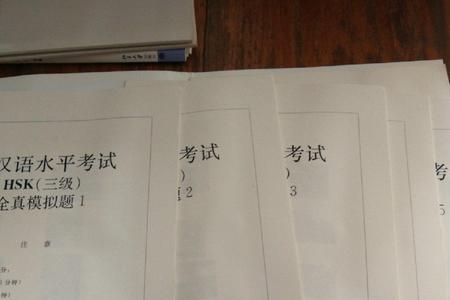 汉语水平考试
HSK(三级)
全真模拟题1
注 意
考试
)
题2
考试
)
3
考
5